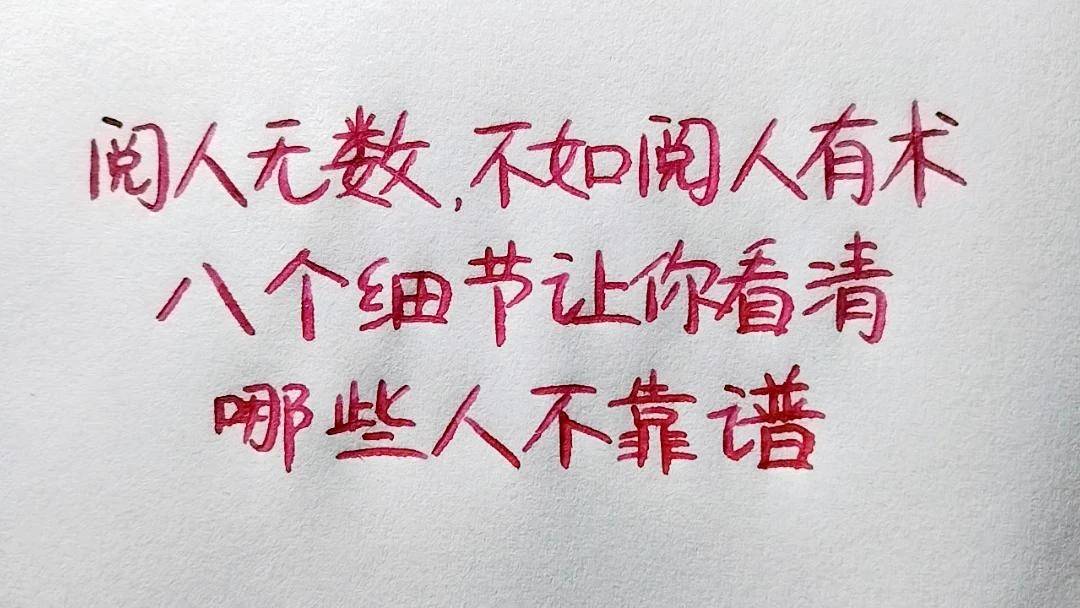 阅人无数,不如阅人有术
八个细节让你看清
哪些人不靠谱